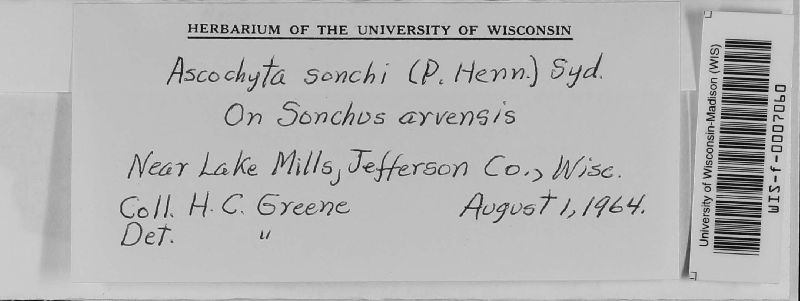 HERBARIUM OF THE UNIVERSITY OF WISCONSIN
Ascochyta sonchi (P. Henn.) Syd.
On Sonchus arvensis
Near Lake Mills, Jefferson Co., Wisc.
Coll. H. C. Greene August 1, 1964.
Det. "
University of Wisconsin-Madison (WIS)
WIS-f-0007060